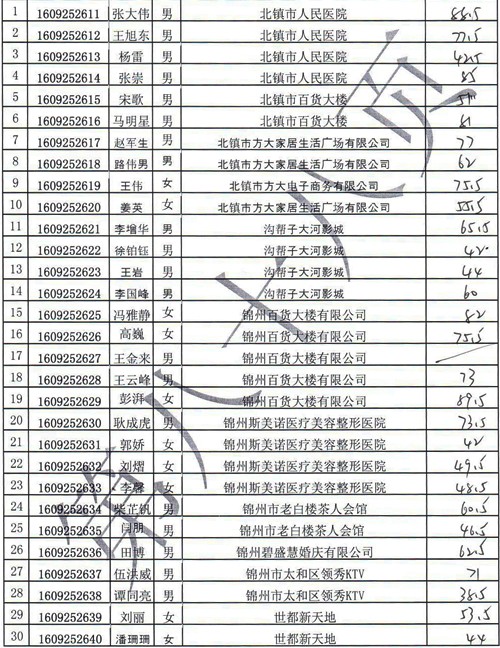 1 1609252611 张大伟 男 北镇市人民医院 88.5
2 1609252612 王旭东 男 北镇市人民医院 77.5
3 1609252613 杨雷 男 北镇市人民医院 42.5
4 1609252614 张崇 男 北镇市人民医院 85
5 1609252615 宋歌 男 北镇市百货大楼
6 1609252616 马明星 男 北镇市百货大楼 81
7 1609252617 赵军生 男 北镇市方大家居生活广场有限公司 77
8 1609252618 路伟男 男 北镇市方大家居生活广场有限公司 62
9 1609252619 王伟 女 北镇市方大电子商务有限公司 75.5
10 1609252620 姜英 女 北镇市方大家居生活广场有限公司 55.5
11 1609252621 李增华 男 沟帮子大河影城 65.5
12 1609252622 徐铂钰 男 沟帮子大河影城 42
13 1609252623 王岩 男 沟帮子大河影城 44
14 1609252624 李国峰 男 沟帮子大河影城 60
15 1609252625 冯雅静 女 锦州百货大楼有限公司 82
16 1609252626 高巍 女 锦州百货大楼有限公司 75.5
17 1609252627 王金来 男 锦州百货大楼有限公司
18 1609252628 王云峰 男 锦州百货大楼有限公司 73
19 1609252629 彭湃 女 锦州百货大楼有限公司 89.5
20 1609252630 耿成虎 男 锦州斯美诺医疗美容整形医院 73.5
21 1609252631 郭娇 女 锦州斯美诺医疗美容整形医院 42
22 1609252632 刘熠 女 锦州斯美诺医疗美容整形医院 49.5
23 1609252633 李馨 女 锦州斯美诺医疗美容整形医院 48.5
24 1609252634 柴芷帆 男 锦州市老白楼茶人会馆 60.5
25 1609252635 闫朋 男 锦州市老白楼茶人会馆 46.5
26 1609252636 田博 男 锦州碧盛慧婚庆有限公司 62.5
27 1609252637 伍洪威 男 锦州市太和区领秀KTV 71
28 1609252638 谭同亮 男 锦州市太和区领秀KTV 38.5
29 1609252639 刘丽 女 世都新天地 53.5
30 1609252640 潘珊珊 女 世都新天地 44
第八十六页